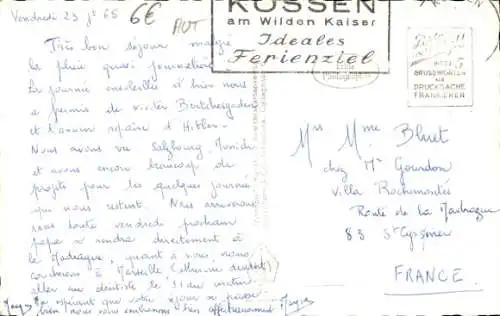 Vendredi 23 jt 65
6€
AUT
KÖSSEN
am Wilden Kaiser
Ideales
Ferienziel
BRUSSWORTEN
ALS
DRUCKSACHE
FRANKIEREN
Très bon séjour malgré
la pluie quasi journalière
La journée ensoleillée d'hier nous
a permis de visiter Berchtesgaden
et l'ancien repaire d'Hitler.
Nous avons vu Salzbourg Munich
et avons encore beaucoup de
projets pour les quelques journées
qui nous restent. Nous arriverons
sans doute vendredi prochain
papa se rendra directement à
la Madrague, quant à nous, nous
Marseille
aller au dentiste le 31 au matin
En espérant que votre séjour se passe
bien nous vous embrassons bien affectueusement
Mrs Mme Bluet
chez Mr Gourdon
Villa Rochemontès
Route de la Madrague
83 St Cyr s/mer
FRANCE